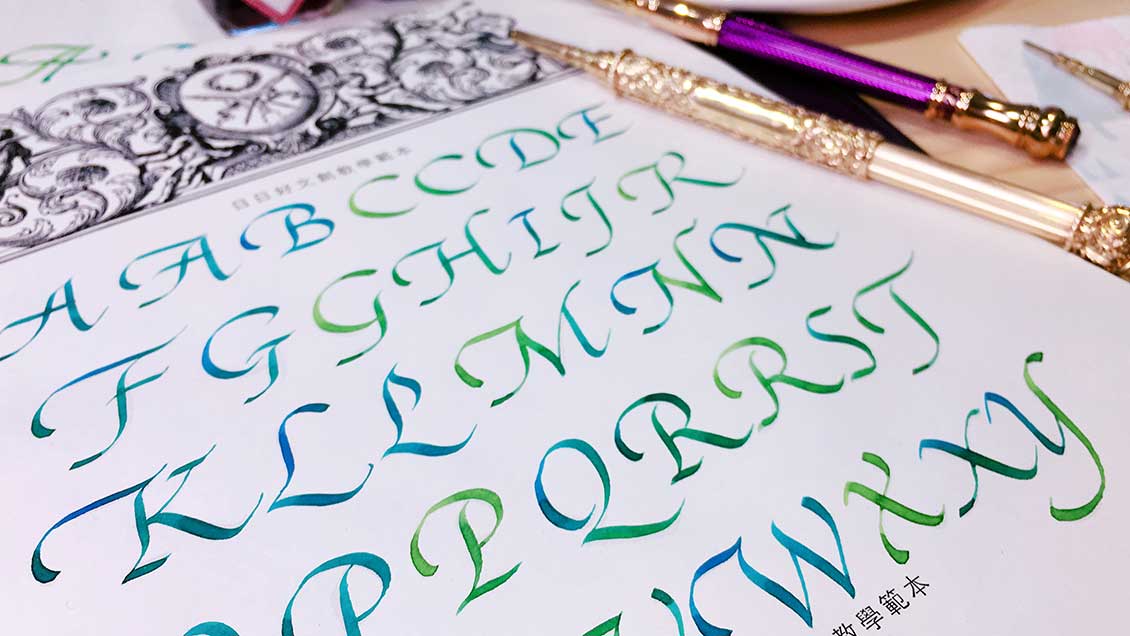 A
日日好文創教學範本
A A B C C D E
F G G H I J R
K L L M N N
P P Q R R S T
W X X Y
教學範本